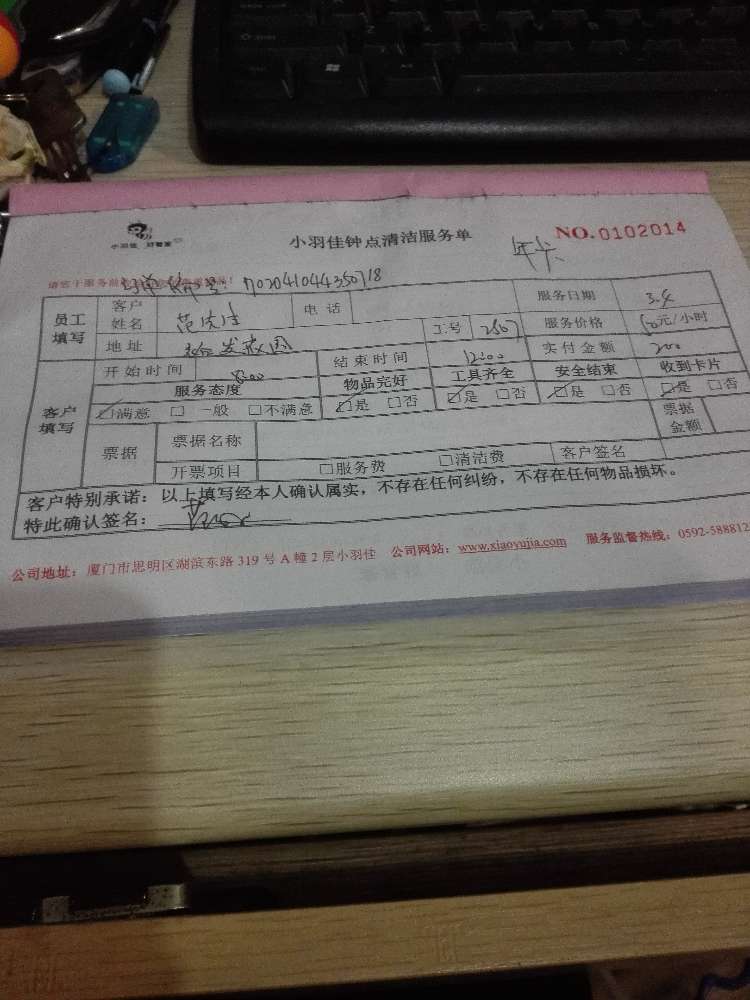 小羽佳 好管家
小羽佳钟点清洁服务单
NO.0102014
年卡
订单编号:
员工填写
客户姓名
电话
服务日期 3.4
地址
工号
服务价格 50元/小时
开始时间 8:00
结束时间 12:00
实付金额 200
客户填写
服务态度 物品完好 工具齐全 安全结束 收到卡片
☑满意 □一般 □不满意 ☑是 □否 ☑是 □否 ☑是 □否 ☑是 □否
票据
票据名称
票据金额
开票项目 □服务费 □清洁费 客户签名
客户特别承诺:以上填写经本人确认属实,不存在任何纠纷,不存在任何物品损坏。
特此确认签名:
公司地址:厦门市思明区湖滨东路 319 号 A 幢 2 层小羽佳 公司网站:www.xiaoyujia.com 服务监督热线:0592-588812